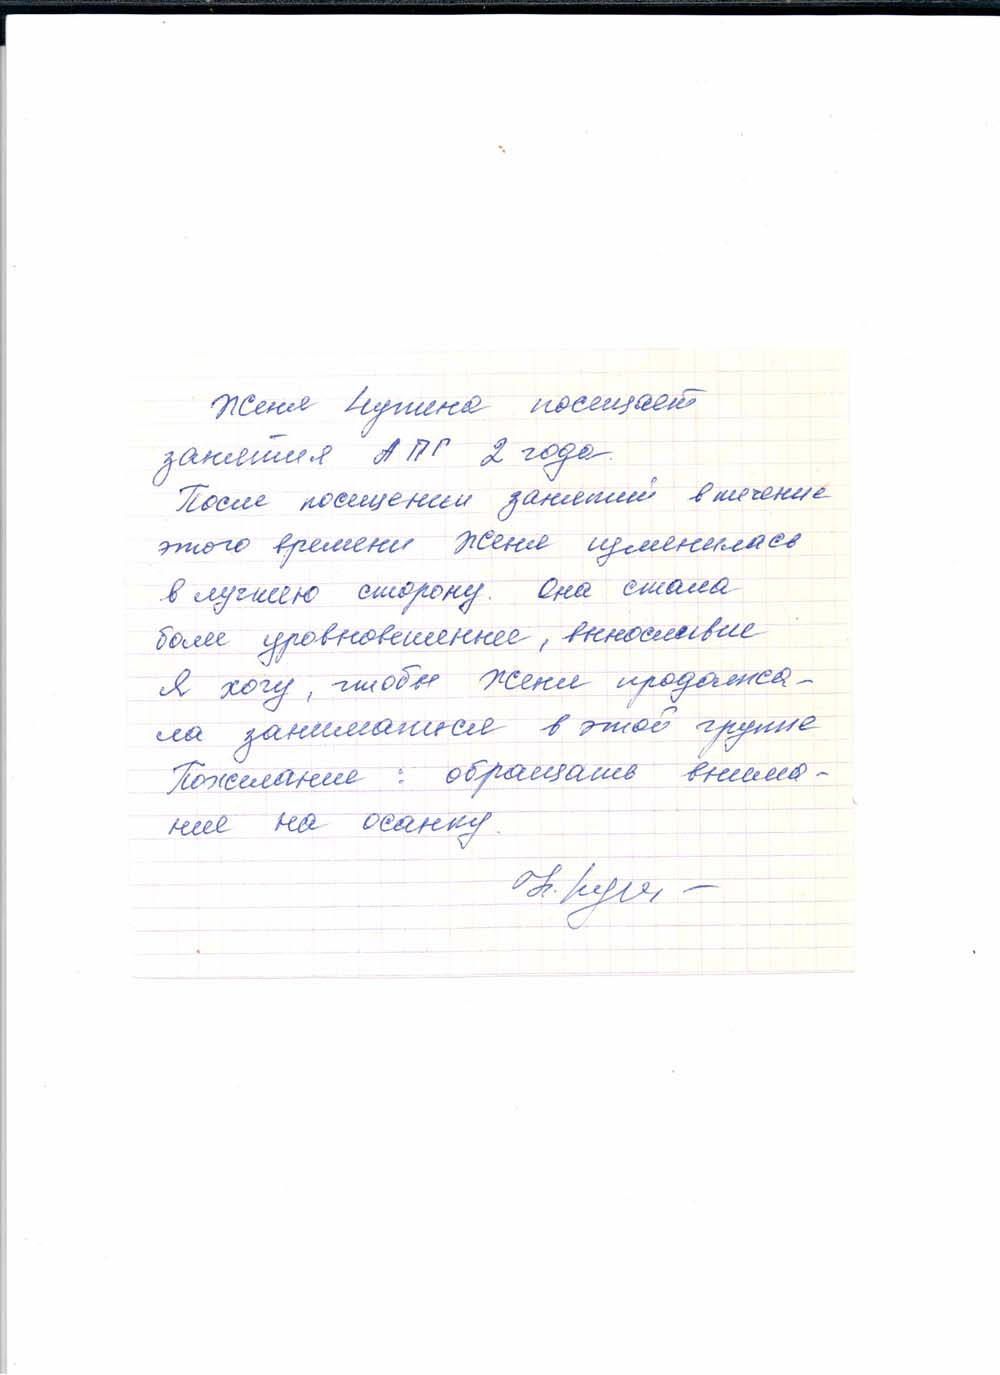 Женя посещает
занятия АПГ 2 года.
После посещении занятий в течение
этого времени Женя изменилась
в лучшею сторону. Она стала
боле уровновешеннее, выносливие
Я хочу, чтобы Женя продолжа-
ла заниматься в этой группе
Пожелание : обращать внима-
ние на осанку.